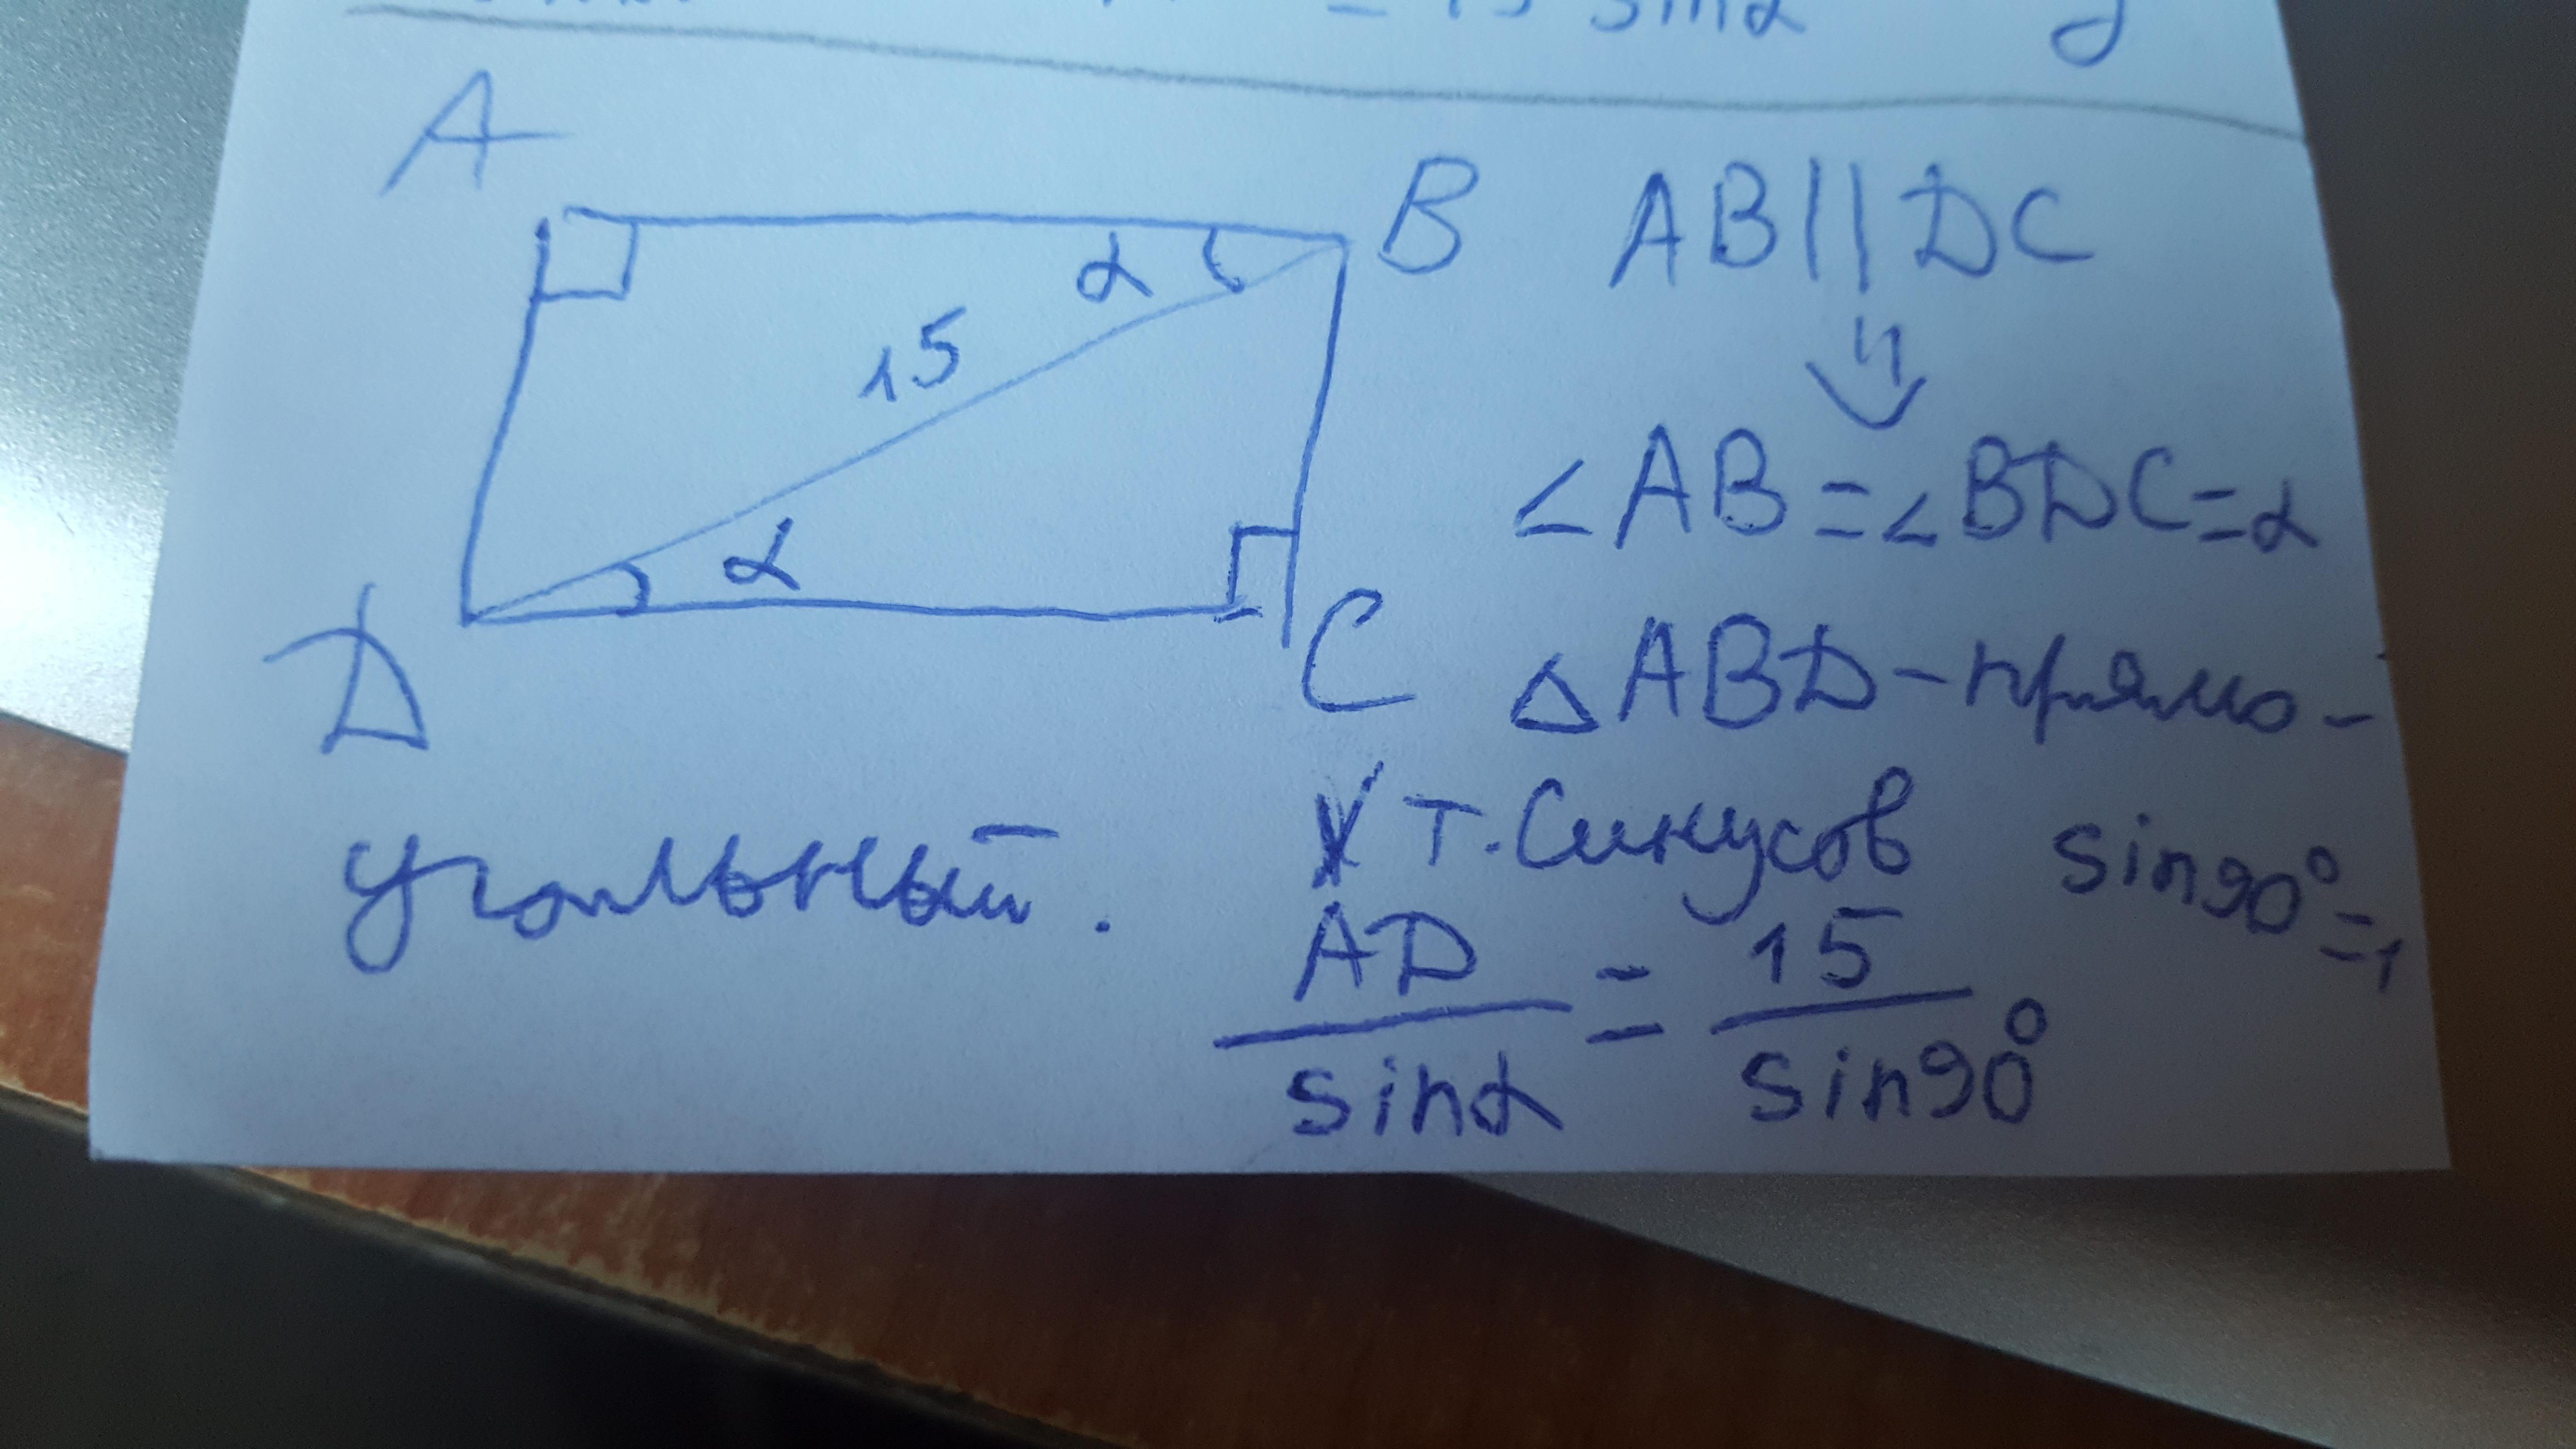 = 15 sinα
A
B
AB||DC
α
15
∠AB=∠BDC=α
α
D
C
△ABD-прямо-
угольный.
т. Синусов
sin90°=1
AD/sinα = 15/sin90°